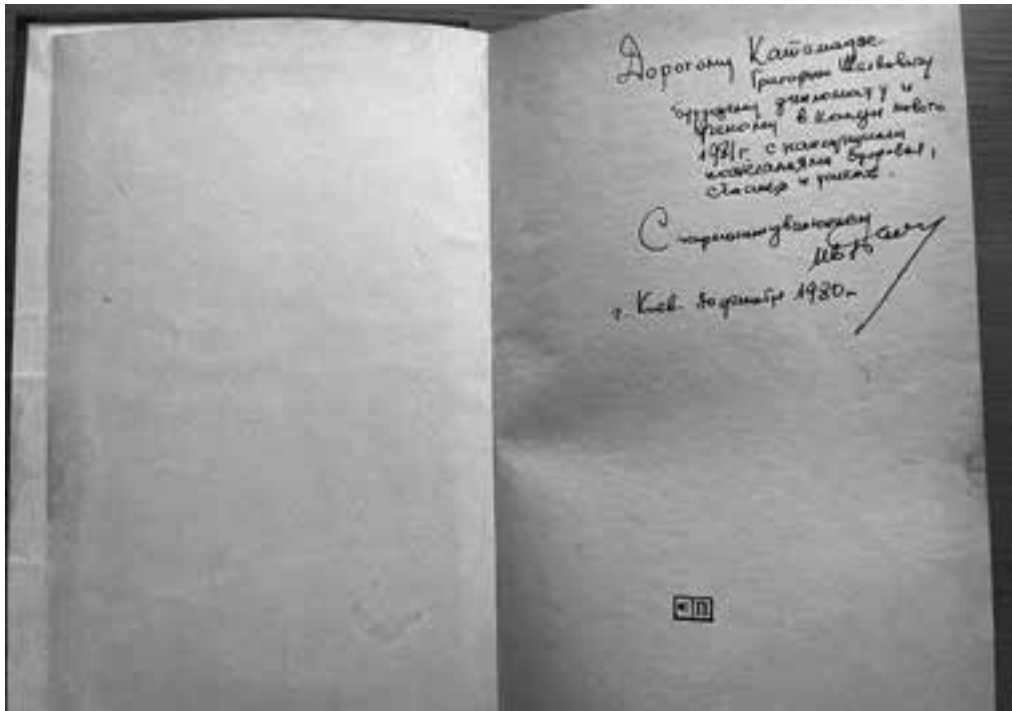 Дорогому Катамадзе
Григорию Шалвовичу
будущему дипломату и
ученому в канун нового
1981г. с наилучшими
пожеланиями здоровья,
счастья и успехов.
С
г. Киев. 30 декабря 1980г.